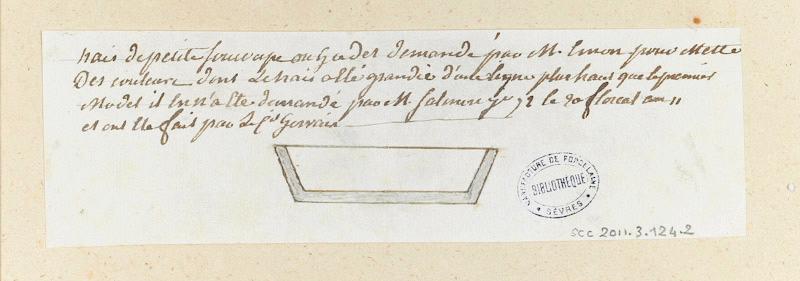 trais de petite soucoupe ou godet demandé par M. pour Mettre
Des couleurs dont Le trais a été grandie d'une ligne plus haut que le premier
Model il en n'a été demandé par M. Salmon 72 le 20 floreal an 11
et ont été fait par Le Cn Gervais
MANUFACTURE DE PORCELAINE
BIBLIOTHEQUE
* SÈVRES *
SCC 2011.3.124.2